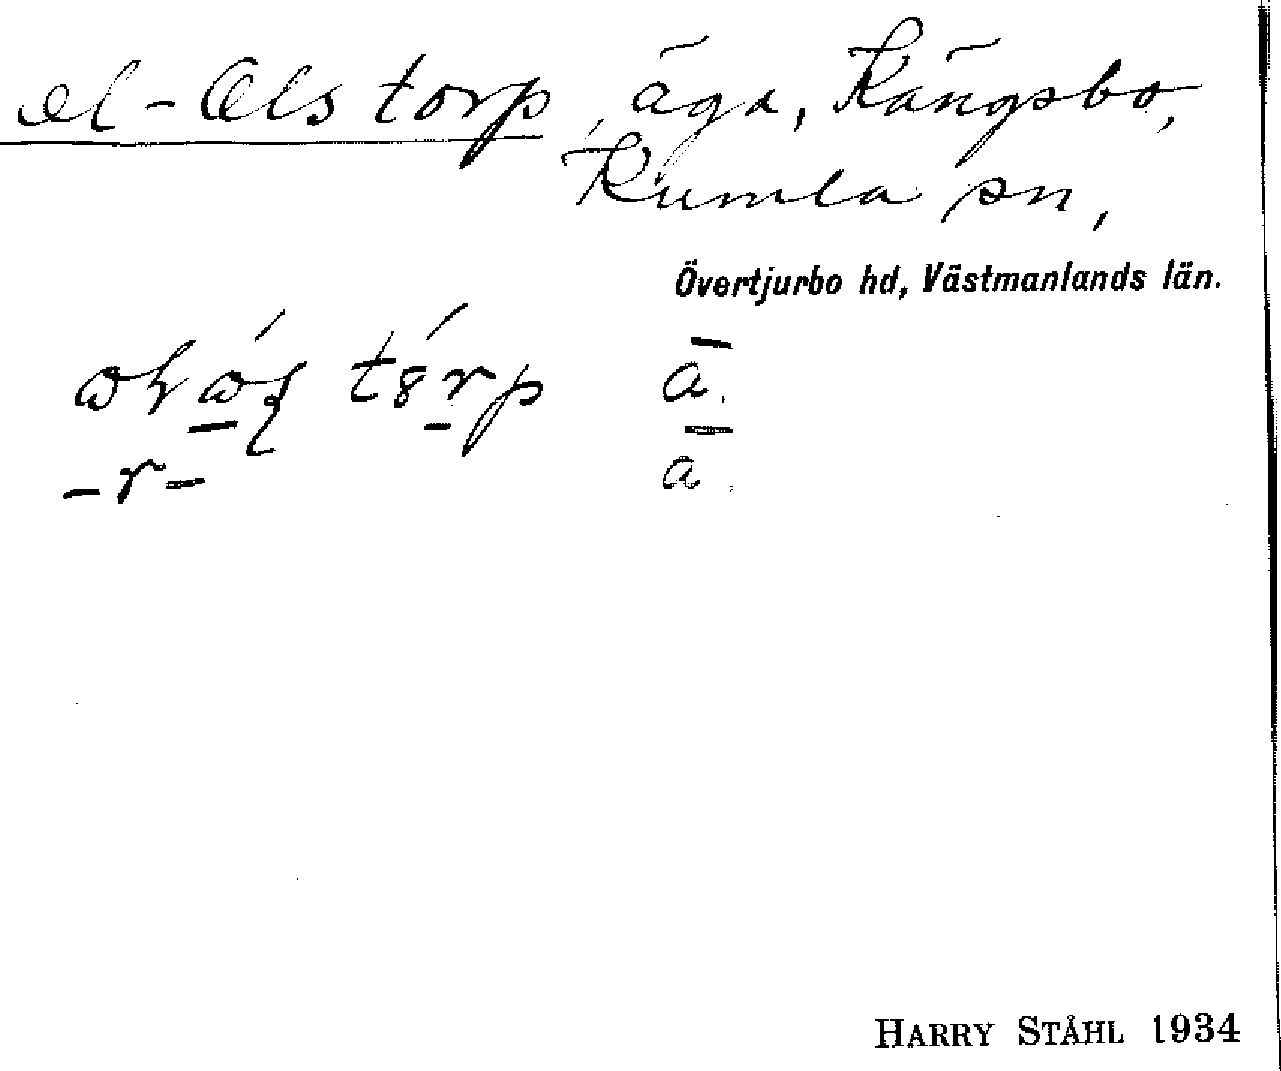 el-Ols torp, äga, Kängsbo,
Kumla sn,
Övertjurbo hd, Västmanlands län.
ā.
-r- ā.
HARRY STÅHL 1934